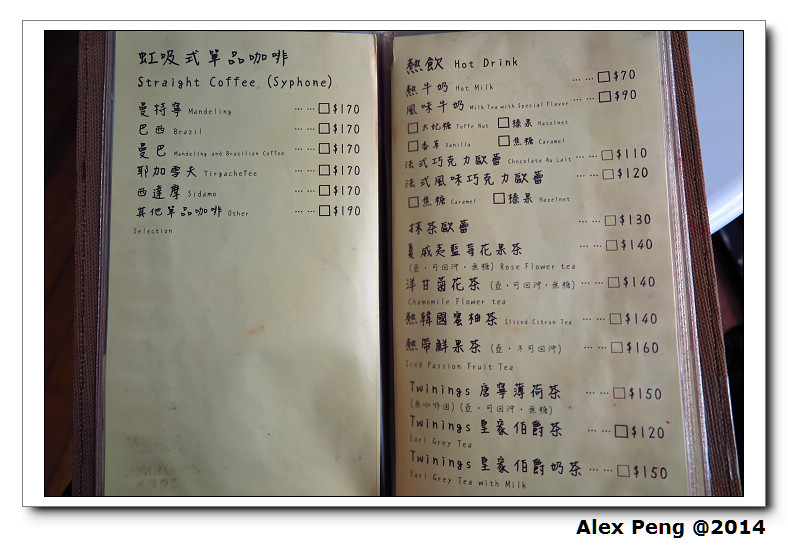 虹吸式單品咖啡
Straight Coffee (Syphone)
曼特寧 Mandeling …… □$170
巴西 Brazil …… □$170
曼巴 Mandeling and Brazilian Coffee …… □$170
耶加雪夫 Yirgachefee …… □$170
西達摩 Sidamo …… □$170
其他單品咖啡 Other …… □$190
Selection
熱飲 Hot Drink
熱牛奶 Hot Milk …… □$70
風味牛奶 Milk Tea with Special Flavor …… □$90
□太妃糖 Toffe Nut □榛果 Hazelnet
□香草 Vanilla □焦糖 Caramel
法式巧克力歐蕾 Chocolate Au Lait …… □$110
法式風味巧克力歐蕾 …… □$120
□焦糖 Caramel □榛果 Hazelnet
抹茶歐蕾 …… □$130
夏威夷藍莓花果茶 …… □$140
(壺，可回沖，無糖) Rose Flower tea
洋甘菊花茶 (壺，可回沖，無糖) …… □$140
Chamomile Flower tea
熱韓國蜜柚茶 Sliced Citron Tea …… □$140
熱帶鮮果茶 (壺，不可回沖) …… □$160
Iced Passion Fruit Tea
Twinings 唐寧薄荷茶 …… □$150
(無咖啡因) (壺，可回沖，無糖)
Twinings 皇家伯爵茶 …… □$120
Earl Grey Tea
Twinings 皇家伯爵奶茶 …… □$150
Earl Grey Tea with Milk
Alex Peng @2014